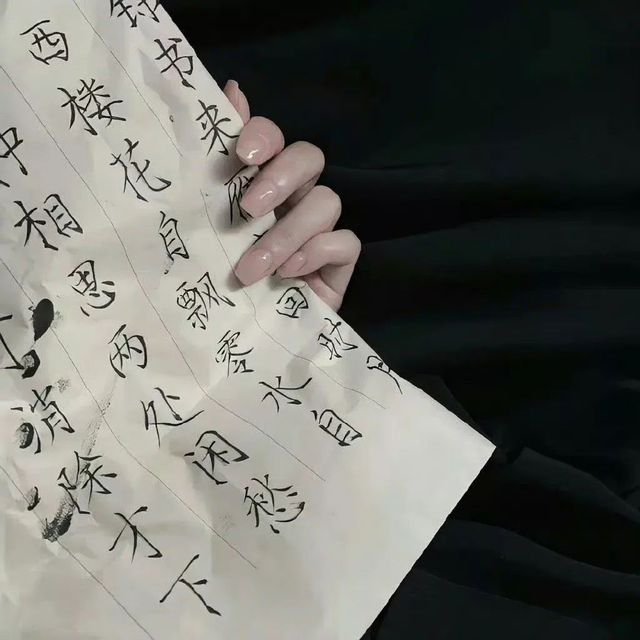 锦书来雁回时月
西楼花自飘零水自
相思两处闲愁
消除才下